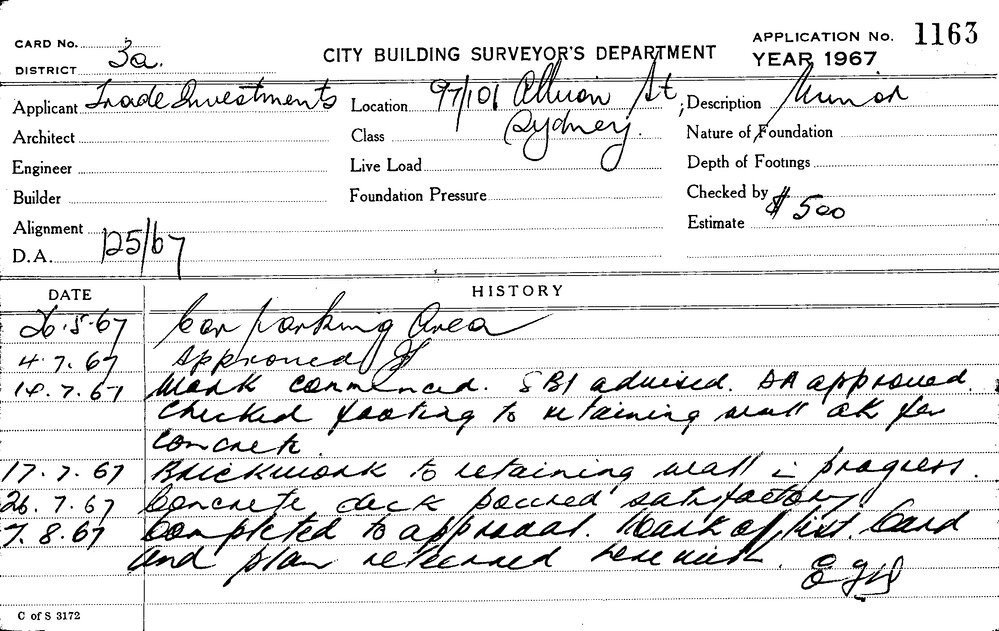 CARD No.
DISTRICT 3a.
CITY BUILDING SURVEYOR'S DEPARTMENT
APPLICATION No. 1163
YEAR 1967
Applicant Trade Investments
Location 97/101 Albion St,
Sydney.
Description Minor
Architect
Class
Nature of Foundation
Engineer
Live Load
Depth of Footings
Builder
Foundation Pressure
Checked by
Alignment
Estimate $500
D.A. 125/67
DATE
HISTORY
26.5.67 Car parking Area
4.7.67 Approved
14.7.67 Work commenced. SBI advised. DA approved.
Checked footing to retaining wall ok for
concrete.
17.7.67 Brickwork to retaining wall in progress.
26.7.67 Concrete deck poured satisfactory
7.8.67 Completed to approval. Mark off list. Card
and plan returned herewith.
C of S 3172